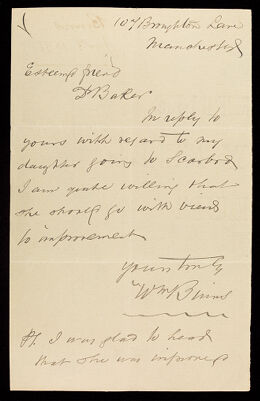 107 Broughton Lane
Manchester
Esteemed friend
Dr Baker
In reply to
yours with regard to my
daughter going to Scarboro
I am quite willing that
she should go with view
to improvement
yours truly
Wm Binns
PS. I was glad to head
that she was improved